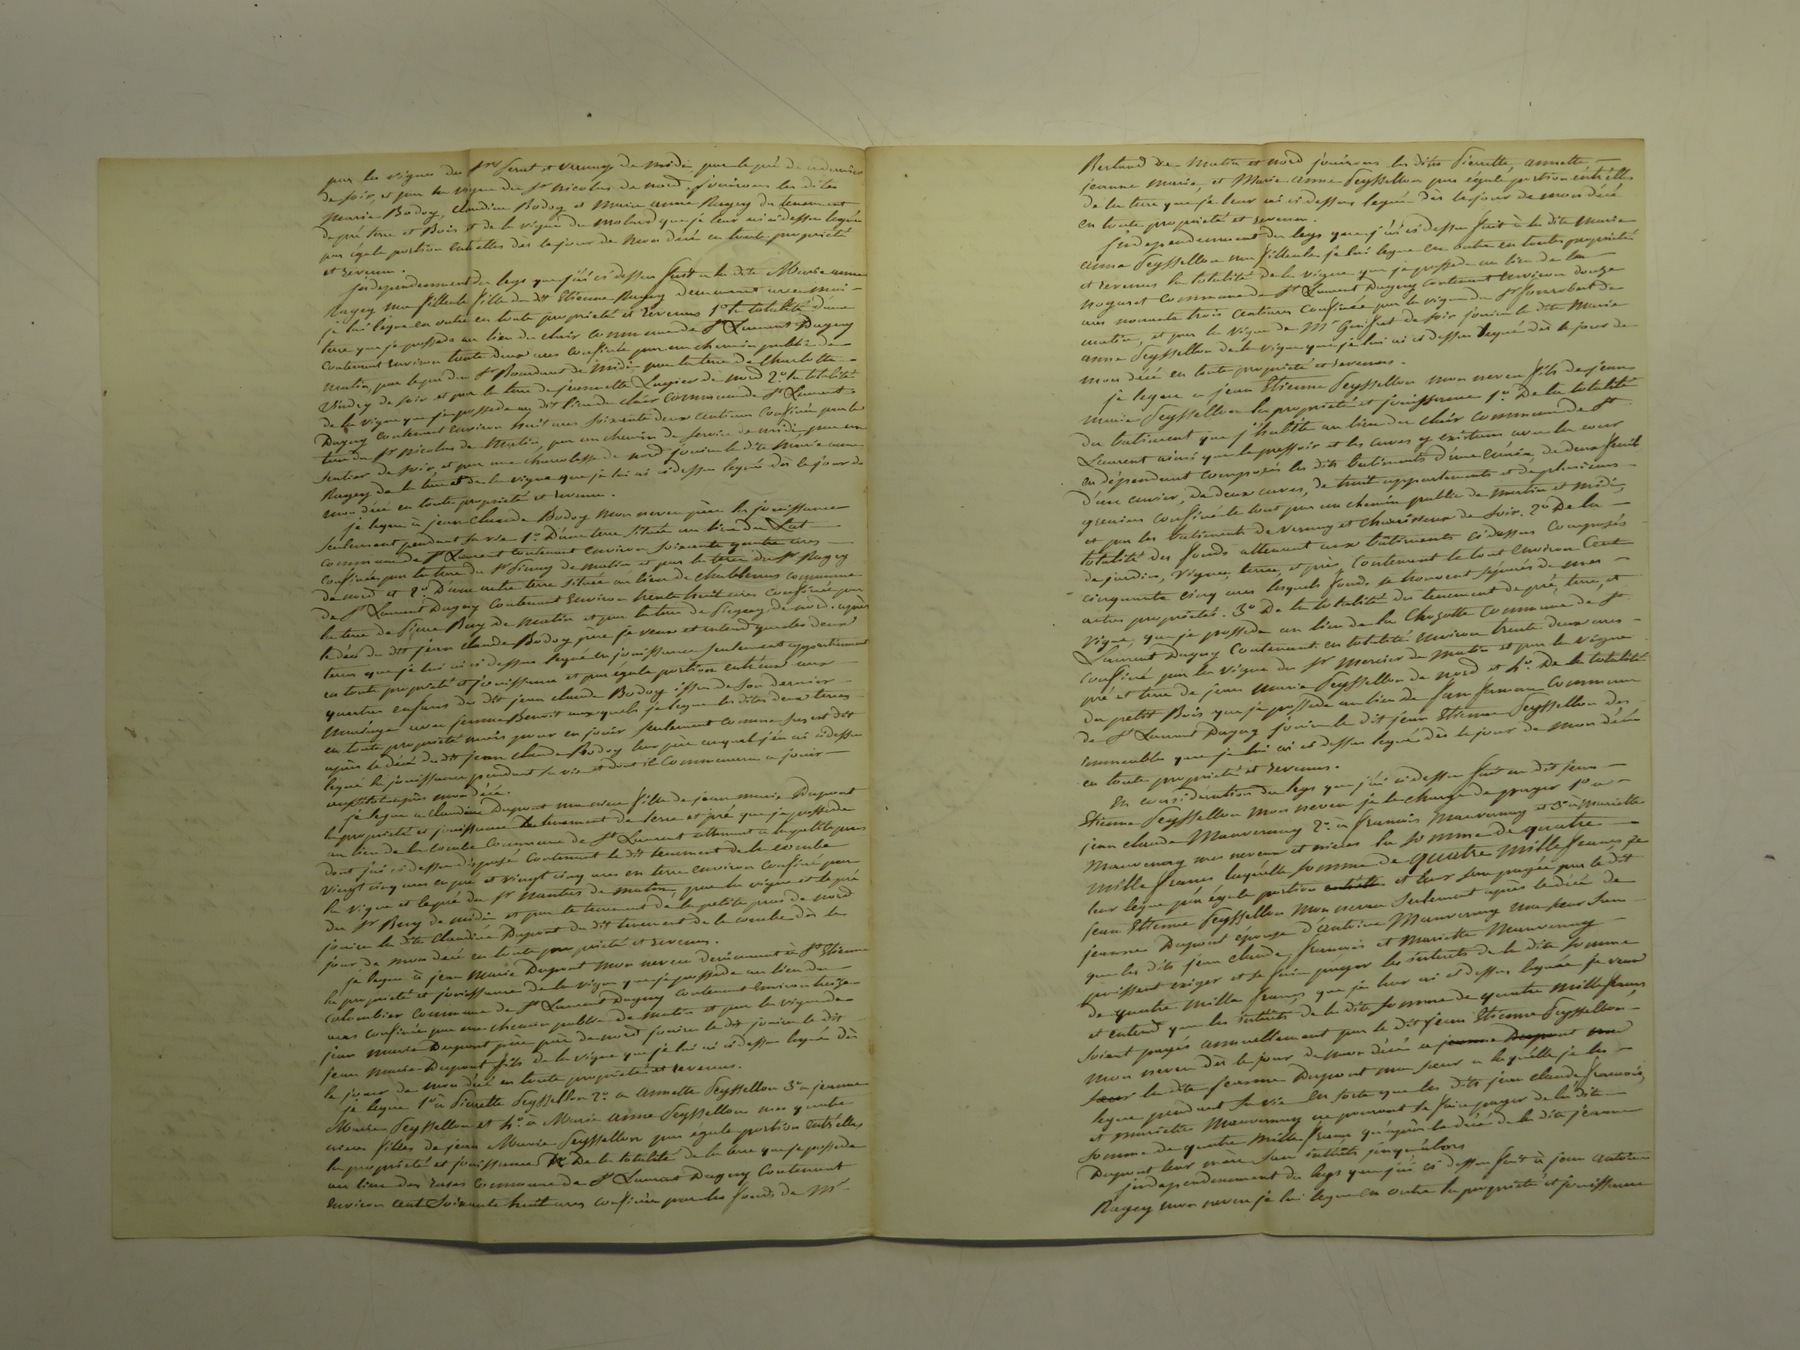 par les vignes des Srs Serat et Vernay de midi par le pré de ce dernier
de soir, et par la vigne du Sr Nicolas de nord. jouiront les dites
Marie Bodoy, Claudine Bodoy et Marie anne Ragey du tenement
de pré terre et Bois et de la vigne du molard que je leur ai ci dessus légués
par égale portion entr'elles dès le jour de mon décé en toute propriété
et revenu.
independemment du legs que j'ai ci dessus fait a la dite Marie anne
Ragey ma filleule fille du dit Etienne Ragey demeurant avec moi
je lui légue en outre en toute propriété et revenus 1o la totalité d'une
terre que je possede au lieu du chair commune de St Laurent Dagny
contenant environ trente deux ares confinée par un chemin public de
matin par le pré du Sr Bourdant de midi par la terre de Charlotte
Vindry de soir et par la terre de jeannette Lagier de nord 2o la totalité
de la vigne que je possede au dit lieu du chair commune de St Laurent
Dagny contenant environ huit ares soixante deux centiares confinée par la
terre du Sr Nicolas de Matin, par un chemin de service de midi, par un
sentier de soir, et par une de nord jouira la dite Marie anne
Ragey de la terre et de la vigne que je lui ai ci dessus légués dès le jour de
mon décé en toute propriété et revenu.
je legue à jean Claude Bodoy mon neveu père la jouissance
seulement pendant sa vie 1o D'une terre située au lieu du Lat
commune de St Laurent contenant environ soixante quatre ares
confinée par la terre du Sr de matin et par la terre du Sr Ragey
de nord et 2o D'une autre terre située au lieu de commune
de St Laurent Dagny contenant environ trente huit ares confinée par
la terre de Pierre Bery de Matin et par la terre de de nord. après
le décé du dit jean claude Bodoy père je veux et entend que les deux
terres que je lui ai ci dessus légué en jouissance seulement appartiennent
en toute propriété et jouissance et par égale portion entr'eux aux
quatres enfans du dit jean claude Bodoy issus de son dernier
mariage avec jeanne Benoit auxquels je legue les dites deux terres
en toute propriété mais pour en jouir seulement comme sus est dit
après le décé du dit jean claude Bodoy leur père auquel j'en ai ci dessus
legué la jouissance pendant sa vie et dont il commencera a jouir
aussitot après mon décé.
je legue a Claudine Dupont ma niece fille de jean marie Dupont
la propriété et jouissance du tenement de terre et pré que je possede
au lieu de la combe commune de St Laurent attenant a la petite pras
dont j'ai ci dessus disposé contenant le dit tenement de la combe
vingt cinq ares en pré et vingt cinq ares en terre environ confiné par
la vigne et le pré du Sr Nantas de matin, par la vigne et le pré
du Sr Bery de midi et par le tenement de la petite pras de nord
jouira la dite Claudine Dupont du dit tenement de la combe dès le
jour de mon décé en toute propriété et revenus.
je legue à jean Marie Dupont mon neveu demeurant à St Etienne
la propriété et jouissance de la vigne que je possede au lieu du
colombier commune de St Laurent Dagny contenant environ treize
ares confinée par un chemin public de matin et par la vigne de
jean Marie Dupont père de nord jouira le dit jouira le dit
jean Marie Dupont fils de la vigne que je lui ai ci dessus leguée dès
le jour de mon décé en toute propriété et revenus.
je legue 1o à Pierrette Peyssellon 2o a annette Peyssellon 3o a jeanne
Marie Peyssellon et 4o a Marie anne Peyssellon mes quatre
nieces filles de jean Marie Peyssellon par égale portion entr'elles
la propriété et jouissance De la totalité de la terre que je possede
au lieu des commune de St Laurent Dagny contenant
environ cent soixante huit ares confinée par les fonds de Mr
Bertrand de Matin et nord jouirons les dites Pierrette, annette,
jeanne Marie, et Marie anne Peyssellon par égale portion entr'elles
de la terre que je leur ai ci dessus legué dès le jour de mon décé
en toute propriété et revenu.
independemment du legs que j'ai ci dessus fait à la dite Marie
anne Peyssellon ma filleule je lui legue en outre en toute propriété
et revenus la totalité de la vigne que je possede au lieu de la
nogaret commune de St Laurent Dagny contenant environ douze
ares nonante trois centiares confinée par la vigne du Sr Jourobert de
matin, et par la vigne de Mr de soir jouira la dite Marie
anne Peyssellon de la vigne que je lui ai ci dessus leguée dès le jour de
mon décé en toute propriété et revenus.
je legue a jean Etienne Peyssellon mon neveu fils de jean
Marie Peyssellon la propriété et jouissance 1o De la totalité
du batiment que j'habite au lieu du chair commune de St
Laurent ainsi que le pressoir et les cuves y existans avec la cour
en dépendant composés les dits batiments d'une écurie, de deux fenils
d'un cuvier, de deux caves, de huit appartements et de plusieurs
greniers confiné le tout par un chemin public de matin et midi,
et par les batiments de Vernay et de soir. 2o De la
totalité des fonds attenant aux batiments ci dessus composés
de jardin, vigne, terre, et pré, contenant le tout environ cent
cinquante cinq ares lesquels fonds se trouvent séparés de mes
autres propriétés. 3o De la totalité du tenement de pré, terre, et
vigne, que je possede au lieu de la Chazotte commune de St
Laurent Dagny contenant en totalité environ trente deux ares
confiné par la vigne du Sr Mercier de Matin et par la vigne
pré et terre de jean Marie Peyssellon de nord et 4o De la totalité
du petit Bois que je possede au lieu de commune
de St Laurent Dagny jouira le dit jean Etienne Peyssellon des
immeubles que je lui ai ci dessus legués dès le jour de mon décé
en toute propriété et revenus.
En considération du legs que j'ai ci dessus fait au dit jean
Etienne Peyssellon mon neveu je le charge de payer 1o a
jean claude Mauvernay 2o à francois Mauvernay et 3o a Mariette
Mauvernay mes neveux et nieces la somme de quatre
mille francs laquelle somme de quatre mille francs je
leur legue par égale portion entr'elles et leur sera payée par le dit
jean Etienne Peyssellon mon neveu seulement après le décé de
jeanne Dupont épouse d'antoine Mauvernay ma sœur sans
que les dits jean claude, francois et Mariette Mauvernay
puissent exiger et se faire payer les intérêts de la dite somme
de quatre mille francs, que je leur ai ci dessus leguée je veux
et entend que les intérêts de la dite somme de quatre mille francs
soient payés annuellement par le dit jean Etienne Peyssellon
mon neveu dès le jour de mon décé a jeanne Dupont ma
sœur la dite jeanne Dupont ma sœur a laquelle je les
legue pendant sa vie en sorte que les dits jean claude francois,
et mariette Mauvernay ne pourront se faire payer de la dite
somme de quatre mille francs qu'après le décé de la dite jeanne
Dupont leur mère sans intérêts jusqu'alors
independemment du legs que j'ai ci dessus fait à jean antoine
Ragey mon neveu je lui legue en outre la propriété et jouissance